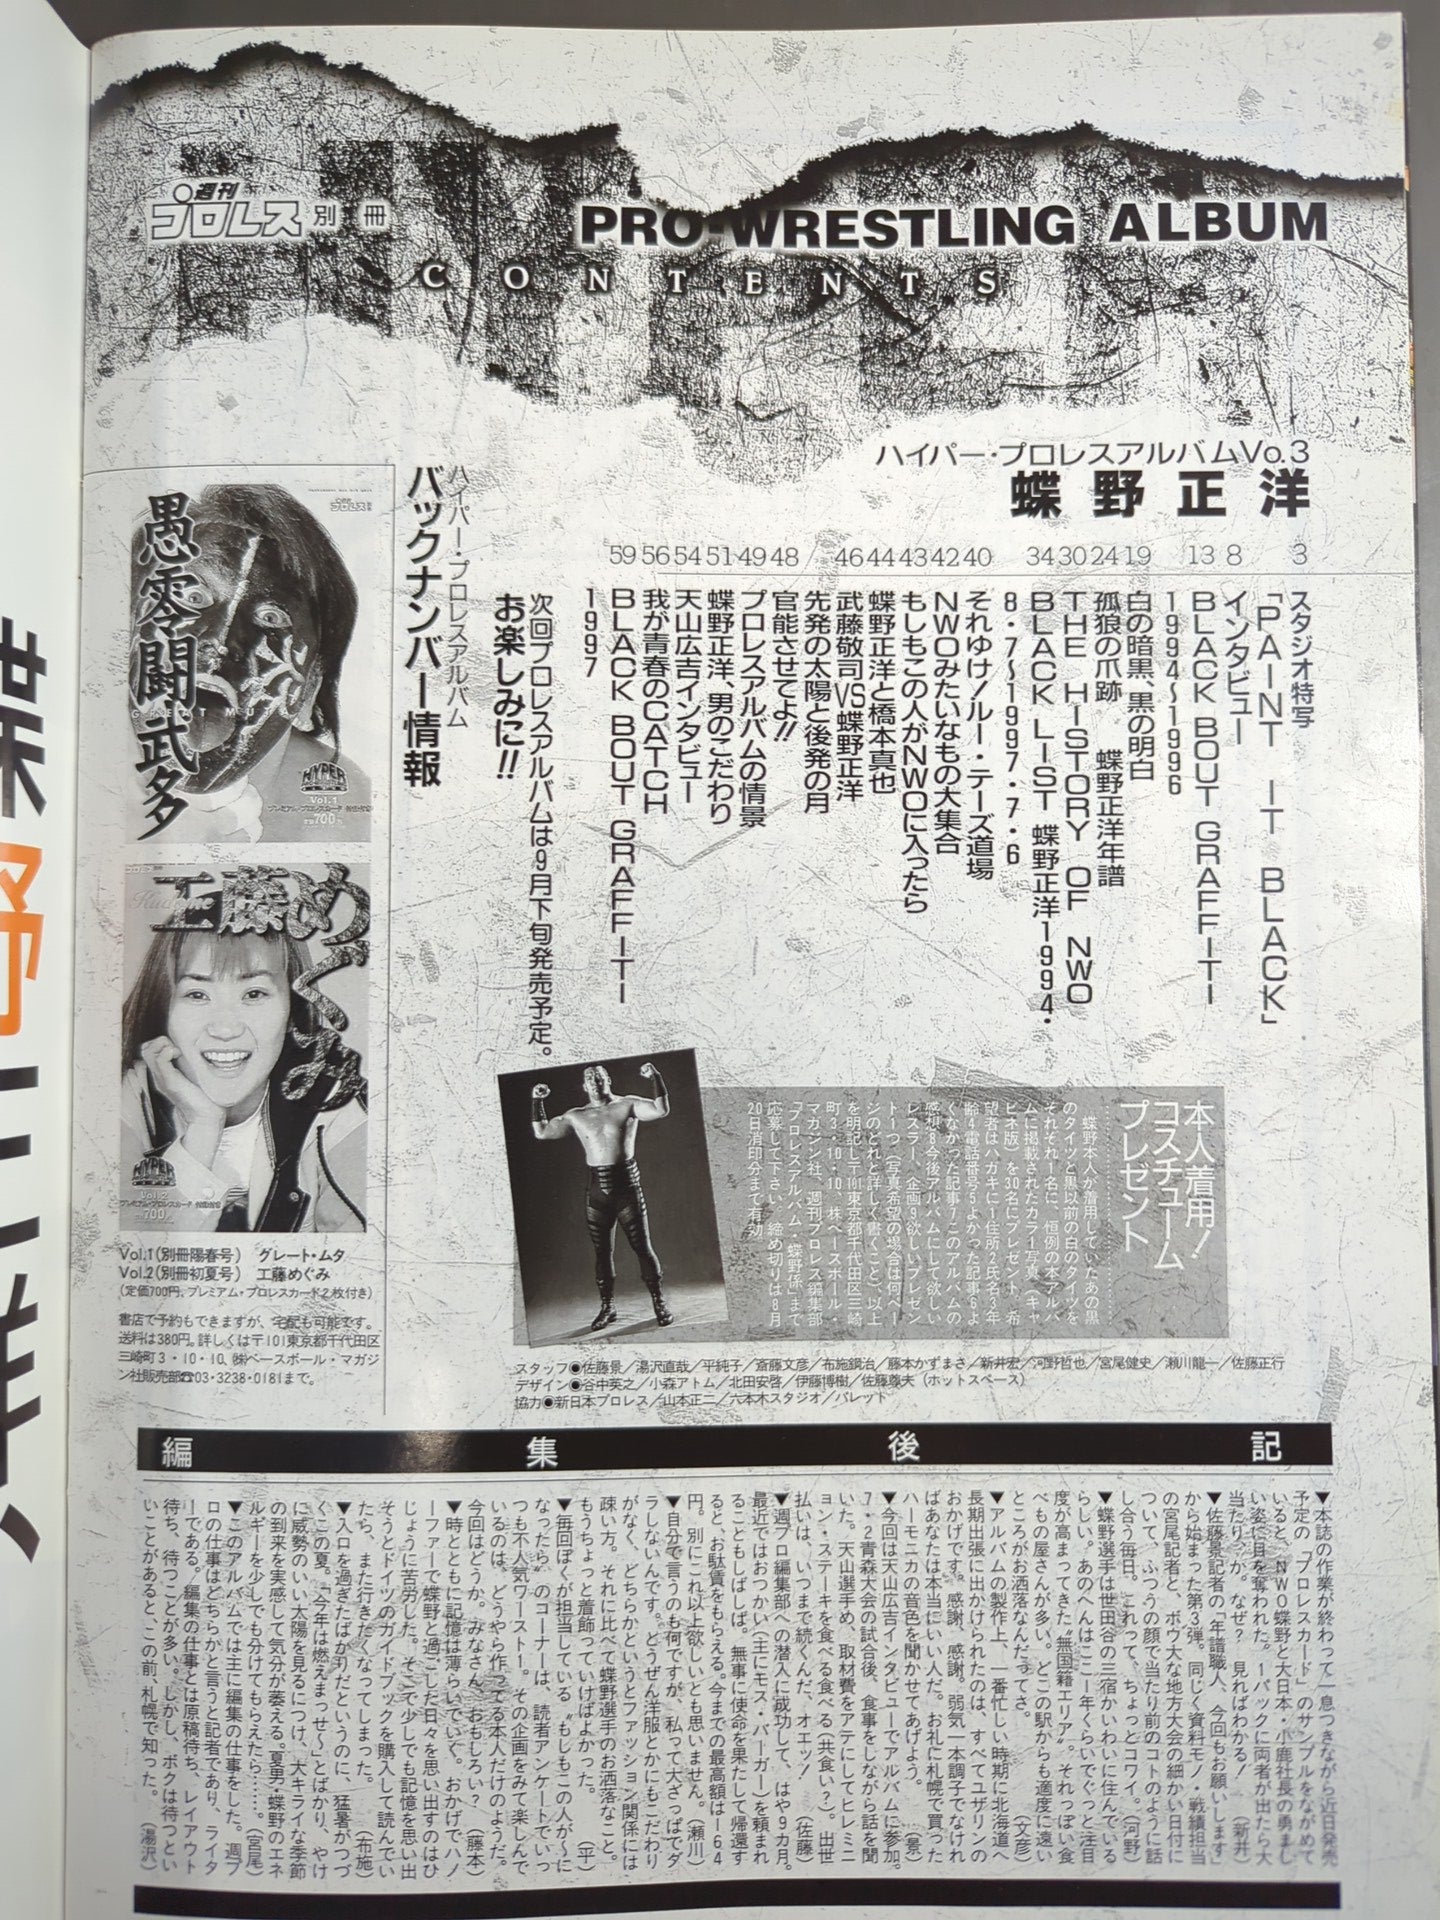 週刊
プロレス別冊
PRO-WRESTLING ALBUM
CONTENTS
ハイパー・プロレスアルバムVo.3
蝶野正洋
3
スタジオ特写
「PAINT IT BLACK」
8
インタビュー
13
BLACK BOUT GRAFFITI
1994〜1996
19
白の暗黒、黒の明白
24
孤狼の爪跡 蝶野正洋年譜
30
THE HISTORY OF NWO
34
BLACK LIST 蝶野正洋1994・
8・7〜1997・7・6
40
それゆけ!ルー・テーズ道場
42
NWOみたいなもの大集合
43
もしもこの人がNWOに入ったら
44
蝶野正洋と橋本真也
46
武藤敬司VS蝶野正洋
先発の太陽と後発の月
48
官能させてよ!!
49
プロレスアルバムの情景
51
蝶野正洋、男のこだわり
54
天山広吉インタビュー
56
我が青春のCATCH
59
BLACK BOUT GRAFFITI
1997
次回プロレスアルバムは9月下旬発売予定。
お楽しみに!!
ハイパー・プロレスアルバム
バックナンバー情報
愚零闘武多
GREAT MUTA
HYPER
Vol.1
700
プロレス
工藤めぐみ
HYPER
Vol.2
700
Vol.1(別冊陽春号) グレート・ムタ
Vol.2(別冊初夏号) 工藤めぐみ
(定価700円、プレミアム・プロレスカード2枚付き)
書店で予約もできますが、宅配も可能です。
送料は380円。詳しくは〒101東京都千代田区
三崎町3・10・10、㈱ベースボール・マガジ
ン社販売部☎03・3238・0181まで。
本人着用!
コスチューム
プレゼント
蝶野本人が着用していたあの黒
のタイツと黒以前の白のタイツを
それぞれ1名に、恒例の本アルバ
ムに掲載されたカラー写真(キャ
ビネ版)を30名にプレゼント。希
望者はハガキに1住所2氏名3年
齢4電話番号5よかった記事6よ
くなかった記事7このアルバムの
感想8今後アルバムにして欲しい
レスラー、企画9欲しいプレゼン
ト1つ(写真希望の場合は何ペー
ジのどれと詳しく書くこと)、以上
を明記し〒101東京都千代田区三崎
町3・10・10、㈱ベースボール・
マガジン社、週刊プロレス編集部
「プロレスアルバム・蝶野係」まで
応募して下さい。締め切りは8月
20日消印分まで有効
スタッフ◉佐藤景/湯沢直哉/平純子/斎藤文彦/布施鋼治/藤本かずまさ/新井宏/河野哲也/宮尾健史/瀬川龍一/佐藤正行
デザイン◉谷中英之/小森アトム/北田安啓/伊藤博樹/佐藤尊夫(ホットスペース)
協力◉新日本プロレス/山本正二/六本木スタジオ/パレット
編集後記
▼本誌の作業が終わって一息つきながら近日発売
予定の「プロレスカード」のサンプルをながめて
いると、NWO蝶野と大日本・小鹿社長の勇まし
い姿に目を奪われた。1パックに両者が出たら大
当たり、か。なぜ? 見ればわかる! (新井)
▼佐藤景記者の「年譜職人、今回もお願いします」
から始まった第3弾。同じく資料モノ・戦績担当
の宮尾記者と、ボウ大な地方大会の細かい日付に
ついて、ふつうの顔で当たり前のコトのように話
し合う毎日。これって、ちょっとコワイ。(河野)
▼蝶野選手は世田谷の三宿かいわいに住んでいる
らしい。あのへんはここ1年くらいでぐっと注目
度が高まってきた〝無国籍エリア〟。それっぽい食
べもの屋さんが多い。どこの駅からも適度に遠い
ところがお洒落なんだってさ。 (文彦)
▼アルバムの製作上、一番忙しい時期に北海道へ
長期出張に出かけられたのは、すべてユザリンの
おかげです。感謝、感謝。弱気一本調子でなけれ
ばあなたは本当にいい人だ。お礼に札幌で買った
ハーモニカの音色を聞かせてあげよう。 (景)
▼今回は天山広吉インタビューでアルバムに参加。
7・2青森大会の試合後、食事をしながら話を聞
いた。天山選手め、取材費をアテにしてヒレミニ
ョン・ステーキを食べる食べる(共食い?)。出世
払いは、いつまで続くんだ、オエッ! (佐藤)
▼週プロ編集部への潜入に成功して、はや9カ月。
最近ではおつかい(主にモス・バーガー)を頼まれ
ることもしばしば。無事に使命を果たして帰還す
ると、お駄賃をもらえる。今までの最高額は164
円。別にこれ以上欲しいとも思いません。(瀬川)
▼自分で言うのも何ですが、私って大ざっぱでダ
ラしないんです。どうぜん洋服とかにもこだわり
がなく、どちらかというとファッション関係には
疎い方。それに比べて蝶野選手のお洒落なこと。
もうちょっと着飾っていけばよかった。 (平)
▼毎回ぼくが担当している〝もしもこの人が〜に
なったら〟のコーナーは、読者アンケートでいっ
つも不人気ワースト1。その企画をみて楽しんで
いるのは、どうやら作ってる本人だけのようだ。
今回はどうか。みなさん、おもしろい? (藤本)
▼時とともに記憶は薄らいでいく。おかげでハノ
ーファーで蝶野と過ごした日々を思い出すのはひ
じょうに苦労した。そこで少しでも記憶を思い出
そうとドイツのガイドブックを購入して読んでい
たら、また行きたくなってしまった。 (布施)
▼入口を過ぎたばかりだというのに、猛暑がつづ
くこの夏。「今年は燃えまっせ〜」とばかり、やけ
に威勢のいい太陽を見るにつけ、大キライな季節
の到来を実感して気分が萎える。夏男・蝶野のエネ
ルギーを少しでも分けてもらえたら……。(宮尾)
▼このアルバムでは主に編集の仕事をした。週プ
ロの仕事はどちらかと言うと記者であり、ライタ
ーである。編集の仕事とは原稿待ち、レイアウト
待ち、待つことが多い。しかし、ボクは待つとい
いことがあると、この前、札幌で知った。(湯沢)